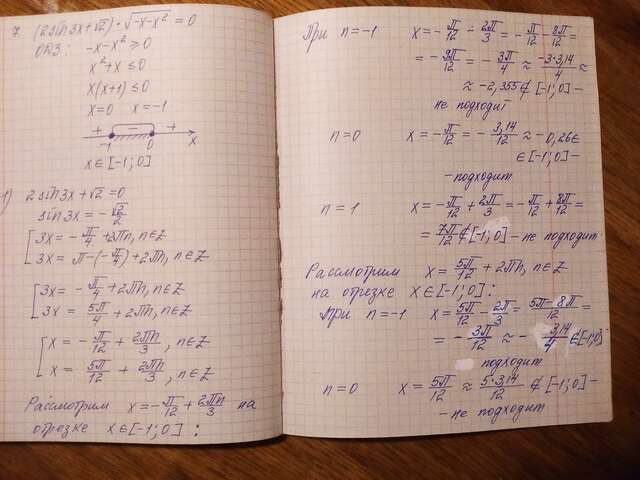 7 (2sin3x+√2)·√(-x-x²) = 0
ОДЗ: -x-x² ≥ 0
x²+x ≤ 0
x(x+1) ≤ 0
x=0 x=-1
+ - + 
-1 0 x
x∈[-1;0]
1) 2sin3x+√2=0
sin3x = -√2/2
[3x = -π/4 + 2πn, n∈Z
[3x = π-(-π/4)+2πn, n∈Z
[3x = -π/4 + 2πn, n∈Z
[3x = 5π/4 + 2πn, n∈Z
[x = -π/12 + 2πn/3, n∈Z
[x = 5π/12 + 2πn/3, n∈Z
Рассмотрим x = -π/12 + 2πn/3 на
отрезке x∈[-1;0]:
При n=-1 x = -π/12 - 2π/3 = -π/12 - 8π/12 =
= -9π/12 = -3π/4 ≈ -3·3,14/4 ≈
≈ -2,355 ∉ [-1;0] -
не подходит
n=0 x = -π/12 = -3,14/12 ≈ -0,26 ∈
∈ [-1;0] -
- подходит
n=1 x = -π/12 + 2π/3 = -π/12 + 8π/12 =
= 7π/12 ∉ [-1;0] - не подходит
Рассмотрим x = 5π/12 + 2πn, n∈Z
на отрезке x∈[-1;0]:
При n=-1 x = 5π/12 - 2π/3 = 5π-8π/12 =
= -3π/12 ≈ -3,14/4 ∈[-1;0]
подходит
n=0 x = 5π/12 ≈ 5·3,14/12 ∉ [-1;0] -
- не подходит